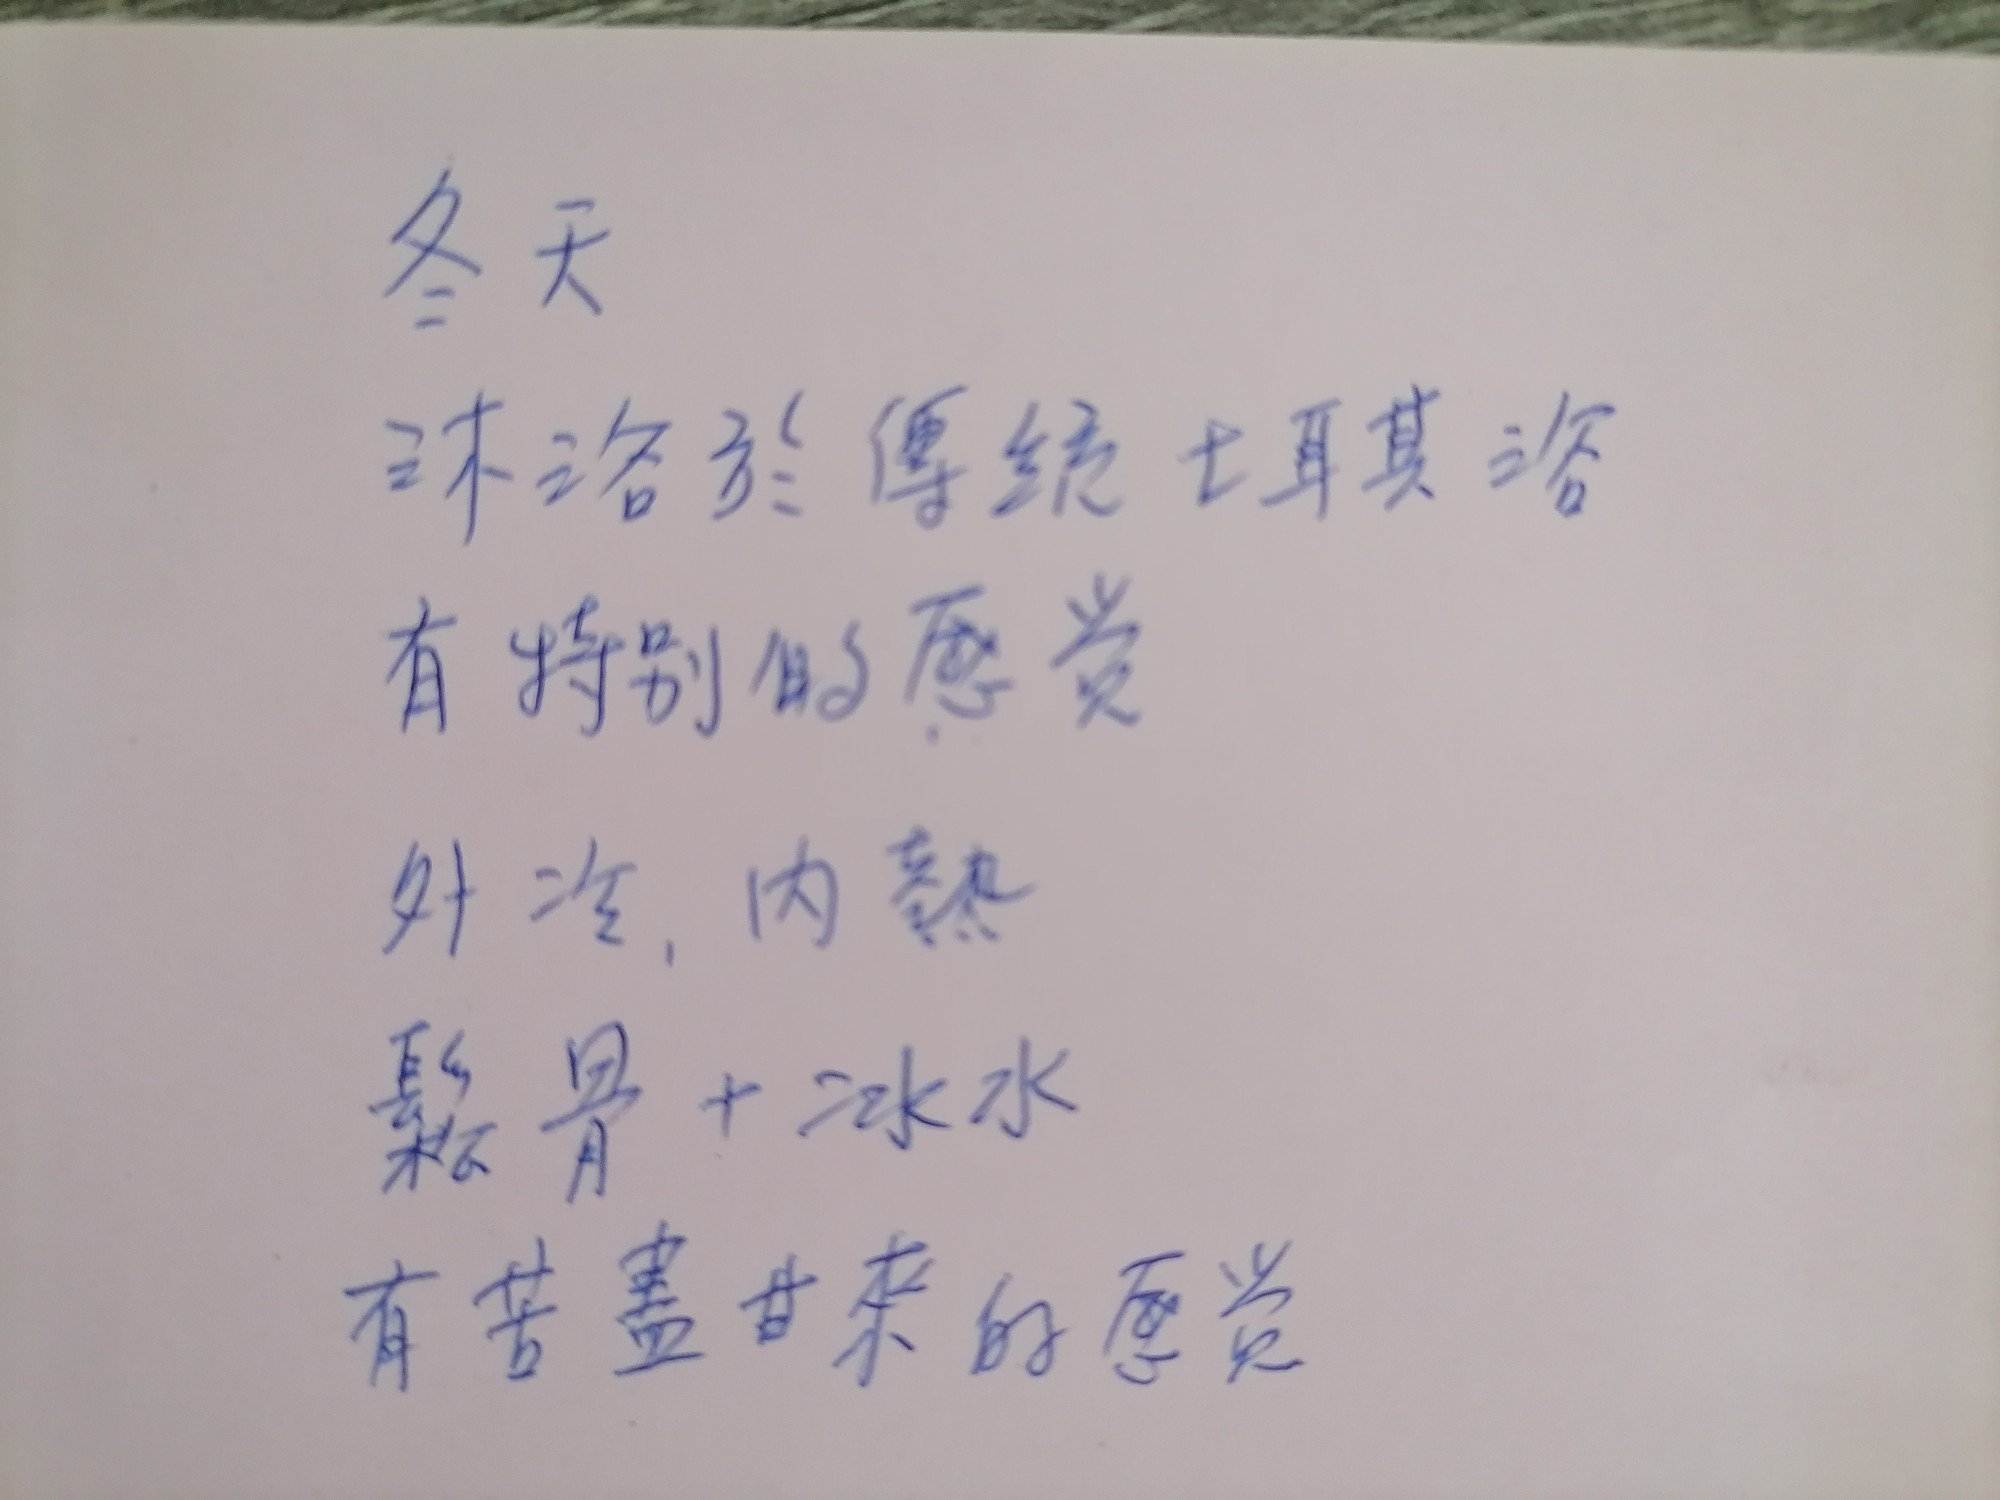 冬天
沐浴於傳統土耳其浴
有特別的感覚
外冷,內熱
鬆骨+冰水
有苦盡甘來的感覚